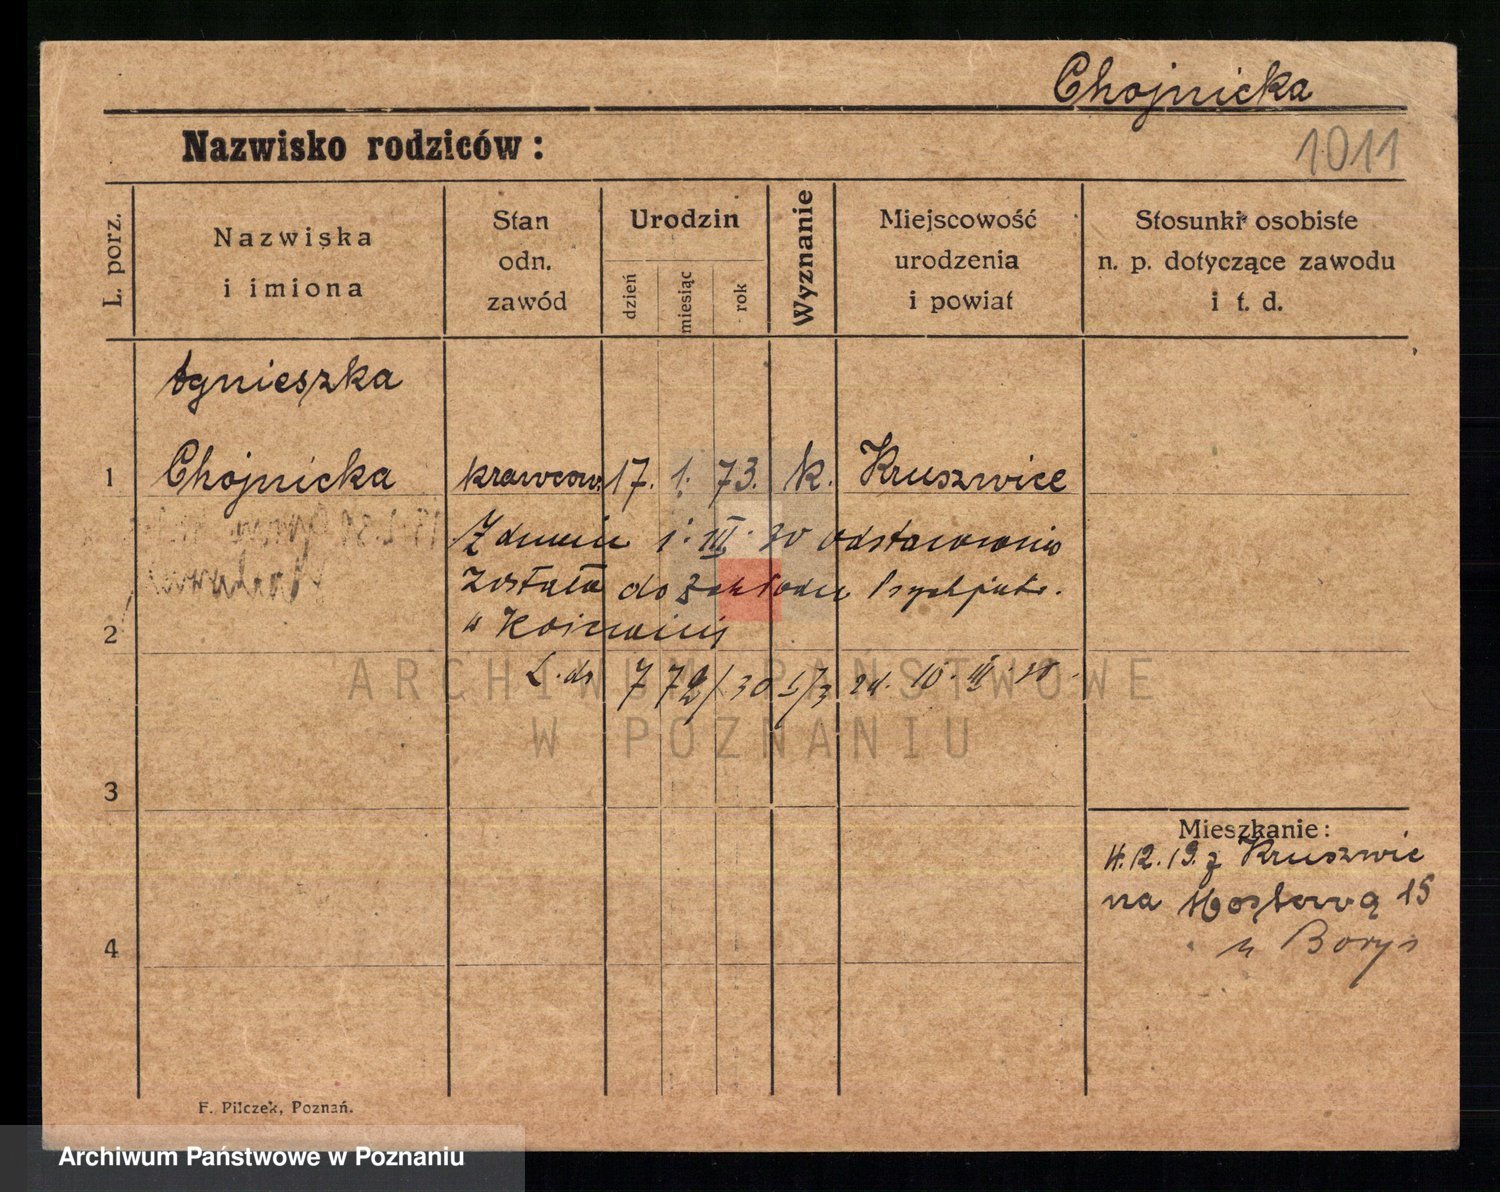 Chojnicka
Nazwisko rodziców:
1011
L. porz.
Nazwiska
i imiona
Stan
odn.
zawód
Urodzin
dzień
miesiąc
rok
Wyznanie
Miejscowość
urodzenia
i powiat
Stosunki osobiste
n. p. dotyczące zawodu
i t. d.
Agnieszka
1 Chojnicka krawcow. 17. 1. 73. k. Kruszwice
Z dniem 1. III. 30 odstawiona
została do Zakładu Psychjatr.
2 w
L. dz 772/30 I/3 zd. 10. III. 30.
ARCHIWUM PAŃSTWOWE
W POZNANIU
3
Mieszkanie:
4.12.19. z Kruszwic
na Mostową 15
u Borys
4
F. Pilczek, Poznań.
Archiwum Państwowe w Poznaniu